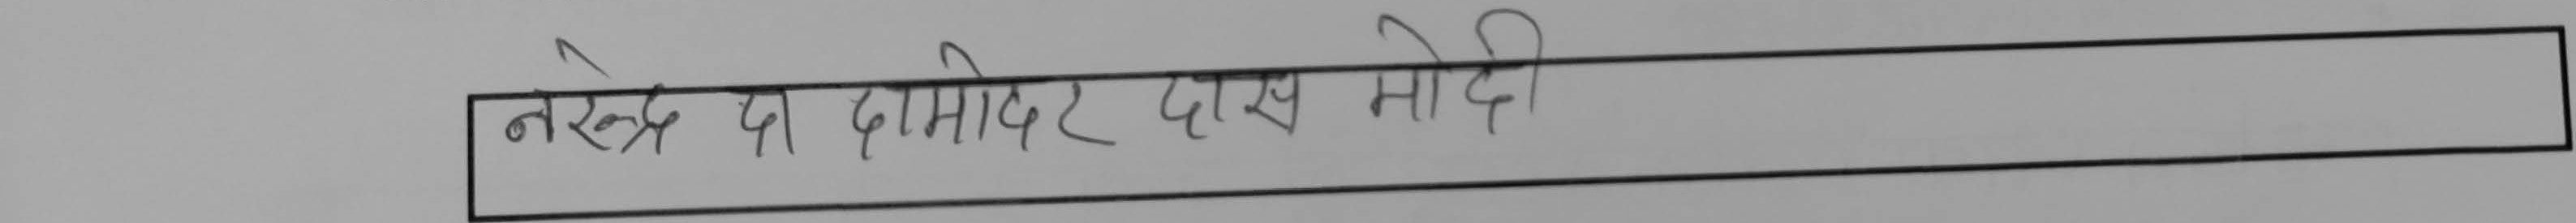 नरेन्द्र दा दामोदर दास मोदी